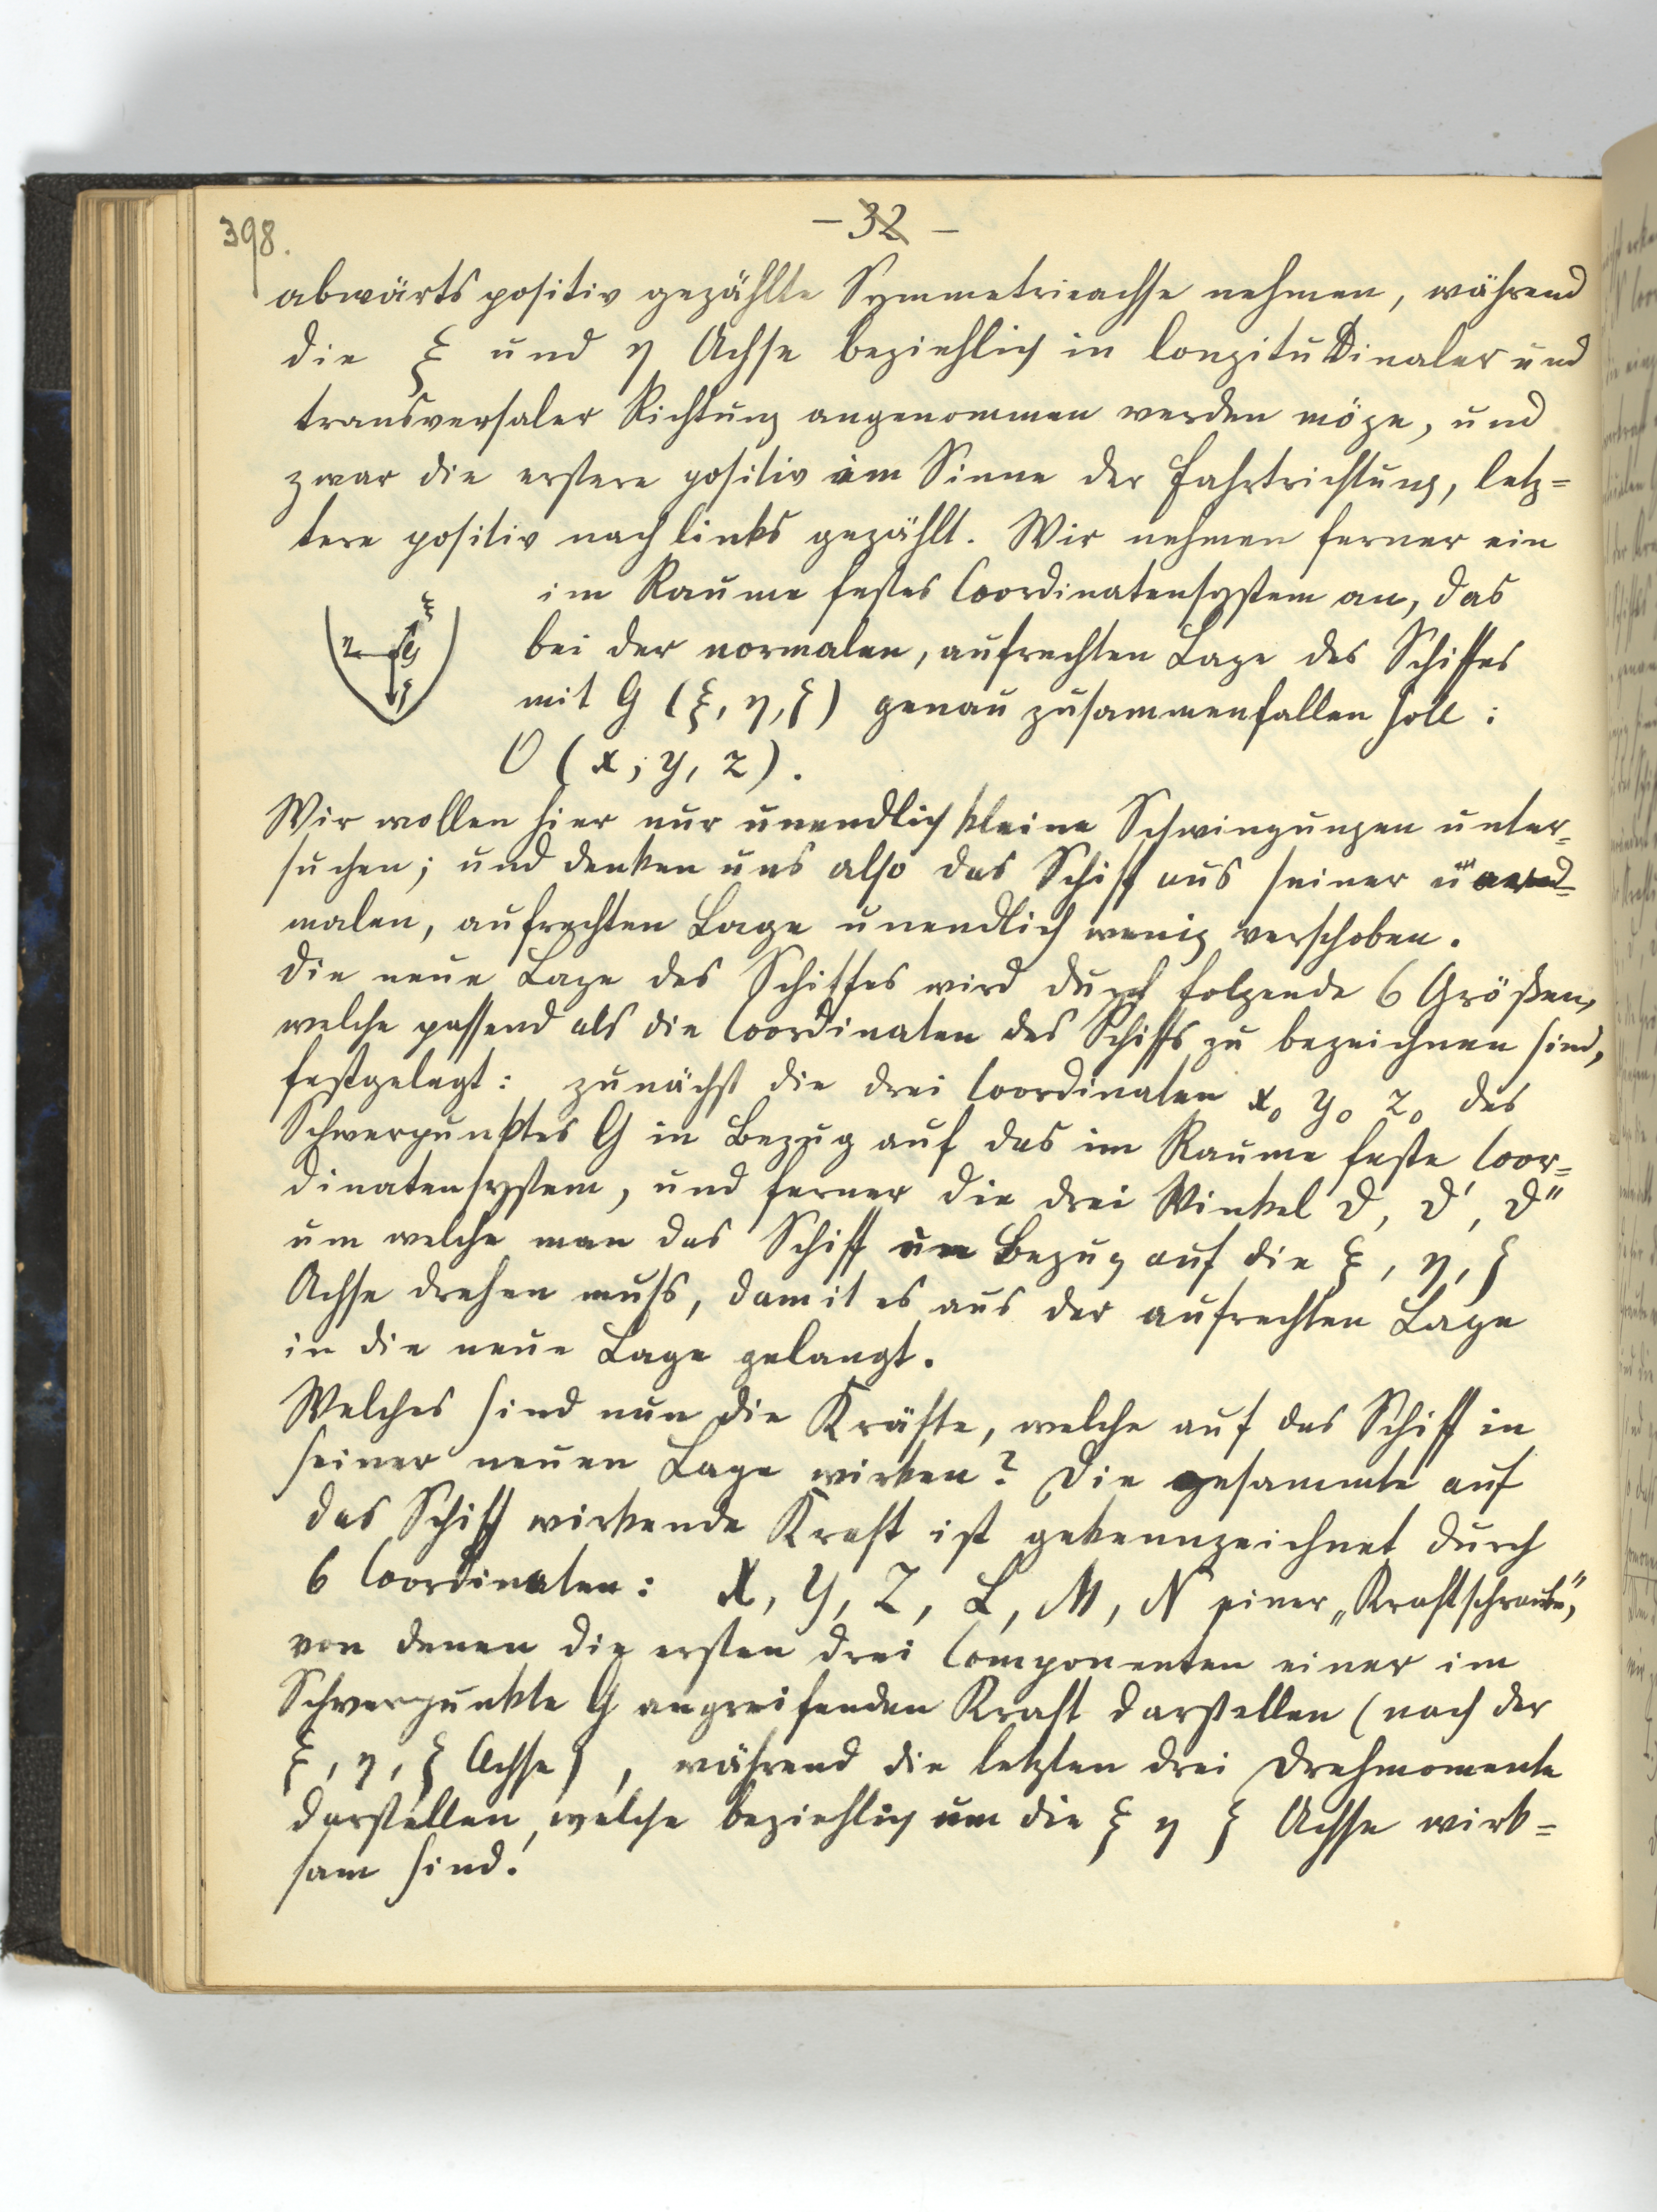 398.
- 32 -
abwärts positiv gezählte Symmetrieachse nehmen, während
die ξ und η Achse beziehlich in longitudinaler und
transversaler Richtung angenommen werden möge, und
zwar die erstere positiv im Sinne der Fahrtrichtung, letz=
tere positiv nach links gezählt. Wir nehmen ferner ein
im Raume festes Coordinatensystem an, das
bei der normalen, aufrechten Lage des Schiffes
mit G (ξ, η, ζ) genau zusammenfallen soll:
O (x, y, z).
ξ
η G
ζ
Wir wollen hier nur unendlich kleine Schwingungen unter=
suchen; und denken uns also das Schiff aus seiner
malen, aufrechten Lage unendlich wenig verschoben.
Die neue Lage des Schiffes wird durch folgende 6 Größen,
welche passend als die Coordinaten des Schiffs zu bezeichnen sind,
festgelegt: zunächst die drei Coordinaten x₀ y₀ z₀ des
Schwerpunktes G in Bezug auf das im Raume feste Coor=
dinatensystem, und ferner die drei Winkel ϑ, ϑ', ϑ''
um welche man das Schiff in Bezug auf die ξ, η, ζ
Achse drehen muß, damit es aus der aufrechten Lage
in die neue Lage gelangt.
Welches sind nun die Kräfte, welche auf das Schiff in
seiner neuen Lage wirken? Die gesammte auf
das Schiff wirkende Kraft ist gekennzeichnet durch
6 Coordinaten: X, Y, Z, L, M, N einer „Kraftschraube",
von denen die ersten drei Componenten einer im
Schwerpunkte G angreifenden Kraft darstellen (nach der
ξ, η, ζ Achse), während die letzten drei Drehmomente
darstellen, welche beziehlich um die ξ η ζ Achse wirk=
sam sind.